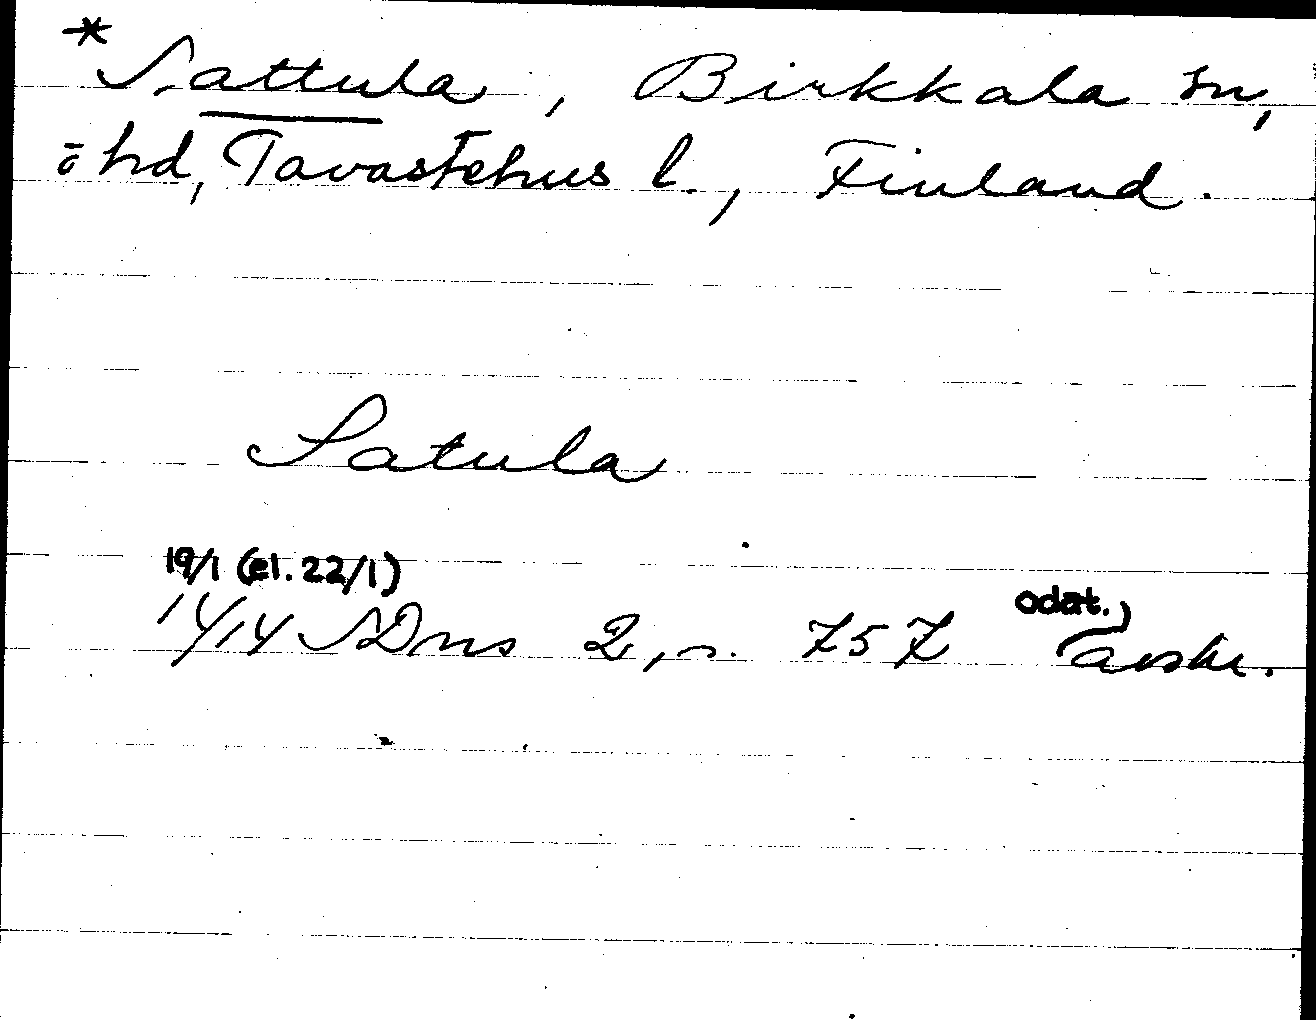 *Sattula, Birkkala sn,
ö hd, Tavastehus l., Finland.
Satula
19/1 (el. 22/1)
1414 SDns 2, s. 757 odat.,
avskr.